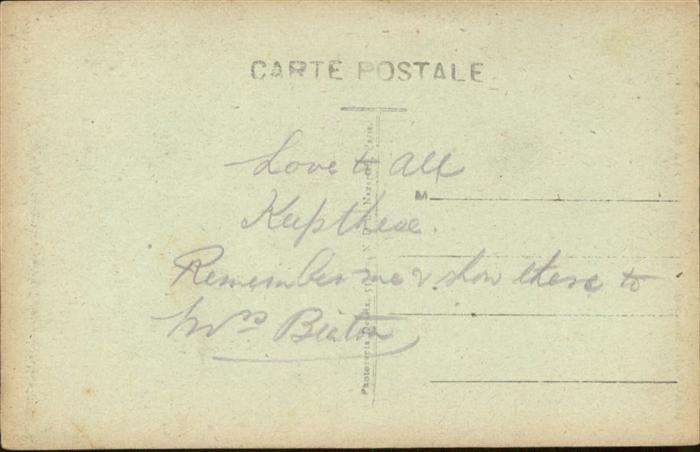 CARTE POSTALE
Love to all
M
Keep these.
Remember me & show these to
Mrs Beaton